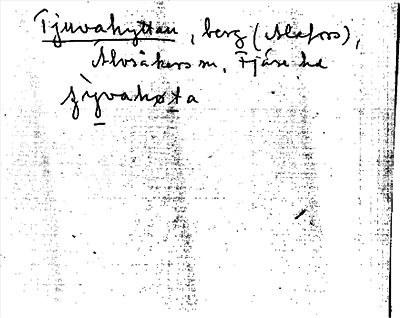 Tjuvahyttan, berg (Alafors),
Älvsåkers sn, Fjäre hd
ʃy̱vahøta